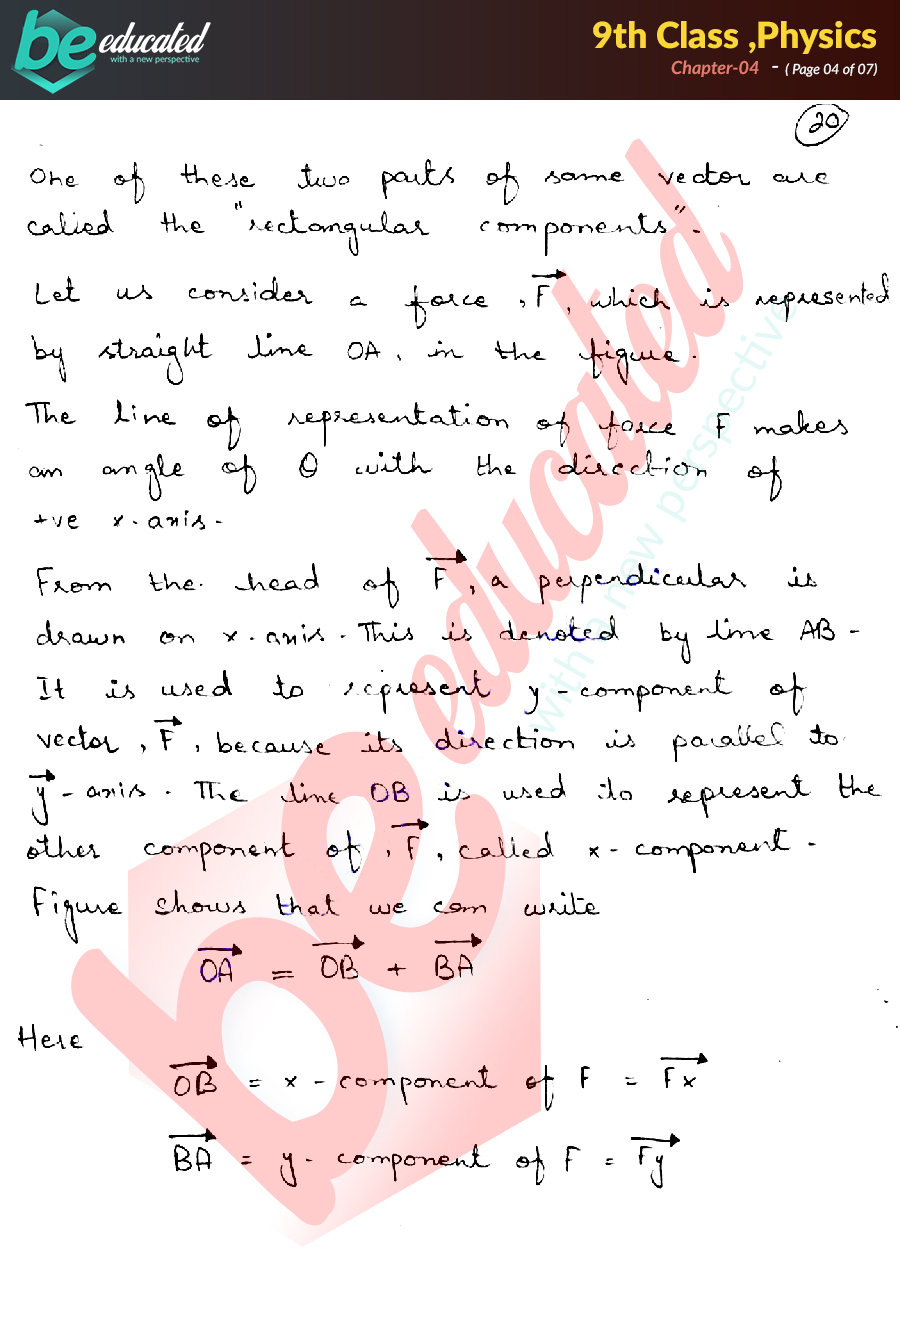 be educated
with a new perspective
9th Class ,Physics
Chapter-04 - ( Page 04 of 07)
20
One of these two parts of same vector are
called the "rectangular components".
Let us consider a force, F, which is represented
by straight line OA, in the figure.
The line of representation of force F makes
an angle of θ with the direction of
+ve x-axis.
From the head of F, a perpendicular is
drawn on x-axis. This is denoted by line AB-
It is used to represent y-component of
vector, F, because its direction is parallel to
y-axis. The line OB is used to represent the
other component of, F, called x-component.
Figure shows that we can write
OA = OB + BA
Here
OB = x-component of F = Fx
BA = y-component of F = Fy
be educated
with a new perspective